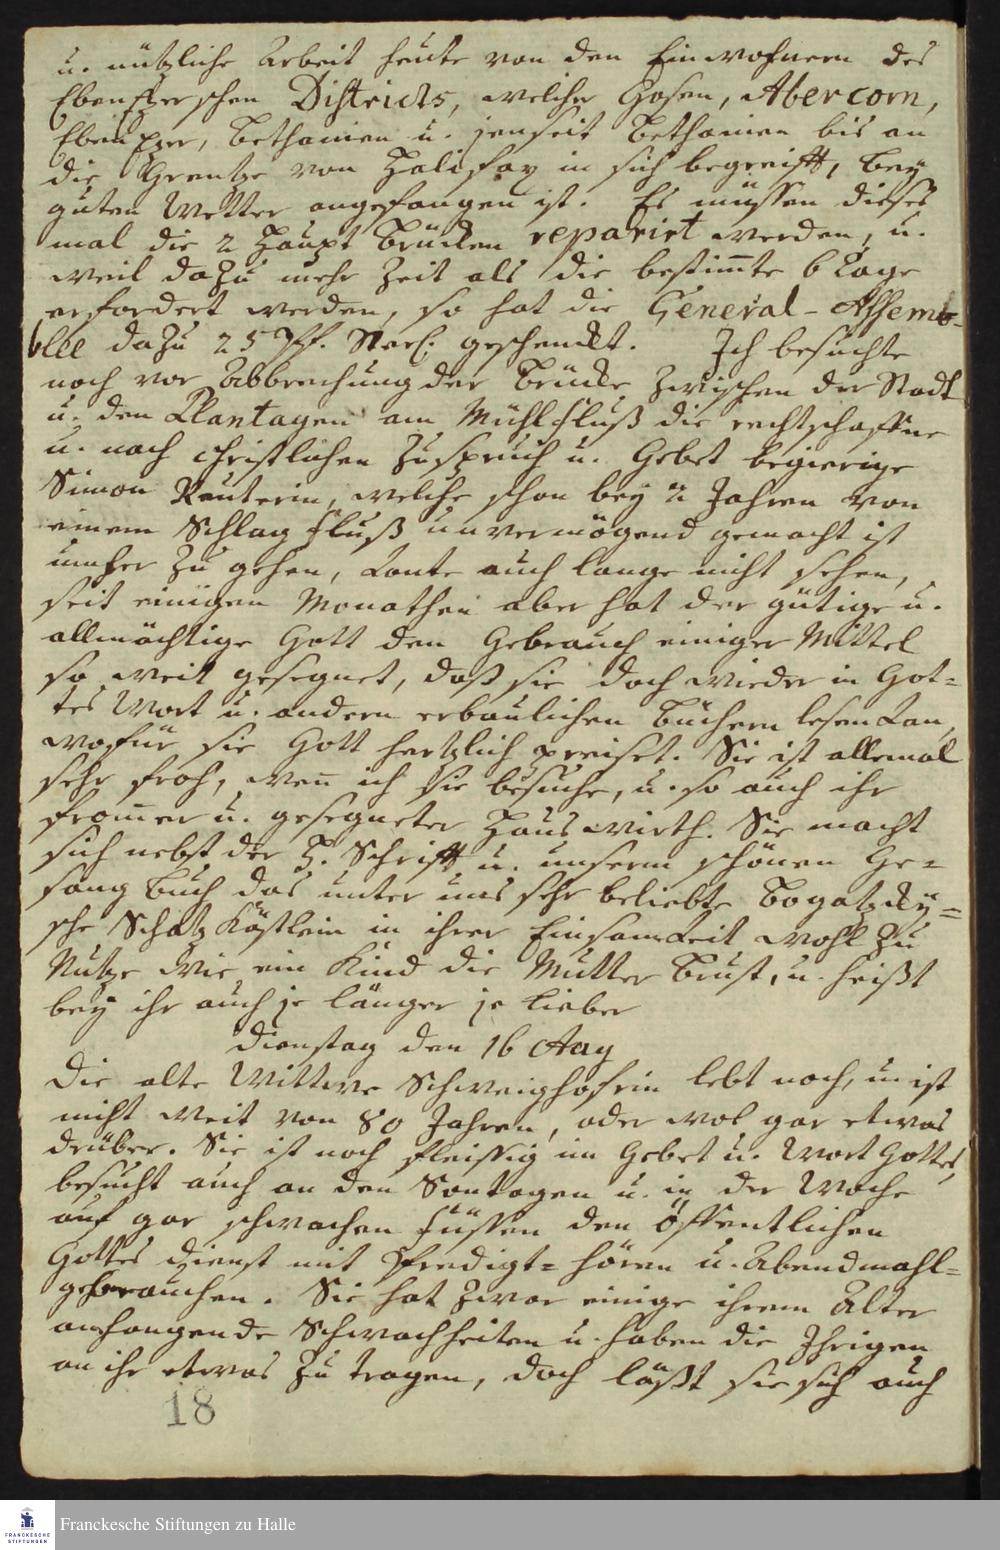 u. nützliche Arbeit heute von den Einwohnern des
Ebenezerschen Districts, welcher Gosen, Abercorn,
Ebenezer, Bethanien u. jenseit Bethanien bis an
die Grentze von Halifax in sich begreifft, bey
guten Wetter angefangen ist. Es müssen dieses
mal die 2 Haupt Brücken reparirt werden, u.
weil dazu mehr Zeit als die bestimte 6 Tage
erfordert werden, so hat die General-Assem-
blee dazu 25 Pf. Sterl. geschenckt. Ich besuchte
noch vor Abbrechung der Brücke zwischen der Stadt
u. den Plantagen am Mühlfluß die rechtschaffne
u. nach christlichen Zuspruch u. Gebet begierige
Simon Reuterin, welche schon bey Jahren von
einem Schlag Fluß unvermögend gemacht ist
umher zu gehen, konte auch lange nicht sehen,
seit einigen Monathen aber hat der gütige u.
allmächtige Gott den Gebrauch einiger Mittel
so weit gesegnet, daß sie doch wieder in Got=
tes Wort u. andern erbaulichen Büchern lesen kan,
wofür sie Gott hertzlich preiset. Sie ist allemal
sehr froh, wen ich sie besuche, u. so auch ihr
fromer u. gesegneter Hauswirth. Sie macht
sich nebst der H. Schrifft u. unserm schönen Ge=
sang Buch das unter uns sehr beliebte Bogatzky=
sche Schatz Kästlein in ihrer Einsamkeit wohl zu
Nutze wie ein Kind die Mutter Brust, u. heißt
bey ihr auch je länger je lieber
Dienstag den 16 Aug
Die alte Wittwe Schweighoferin lebt noch, u. ist
nicht weit von 80 Jahren, oder wol gar etwas
drüber. Sie ist noch fleissig im Gebet u. Wort Gottes,
besucht auch an den Sontagen u. in der Woche
auf gar schwachen Füssen den öffentlichen
Gottes Dienst mit Predigt= hören u. Abendmahl=
gebrauchen. Sie hat zwar einige ihrem Alter
anhangende Schwachheiten u. haben die Ihrigen
an ihr etwas zu tragen, doch läßt sie sich auch
18
Franckesche Stiftungen zu Halle
FRANCKESCHE
STIFTUNGEN